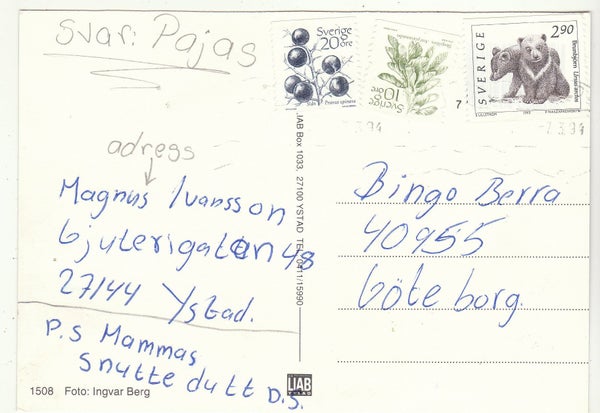 Svar: Pajas
Sverige
20 öre
Slån Prunus spinosa
Sverige
10 öre
SVERIGE
2.90
Brunbjörn Ursus arctos
7
7.3.94
adress
Magnus Ivansson
Gjuterigatan 48
27144 Ystad.
P.S Mammas
snutte dutt D.S.
LIAB Box 1033, 27100 YSTAD TEL 0411/15990
Bingo Berra
40955
Göteborg.
1508 Foto: Ingvar Berg
LIAB